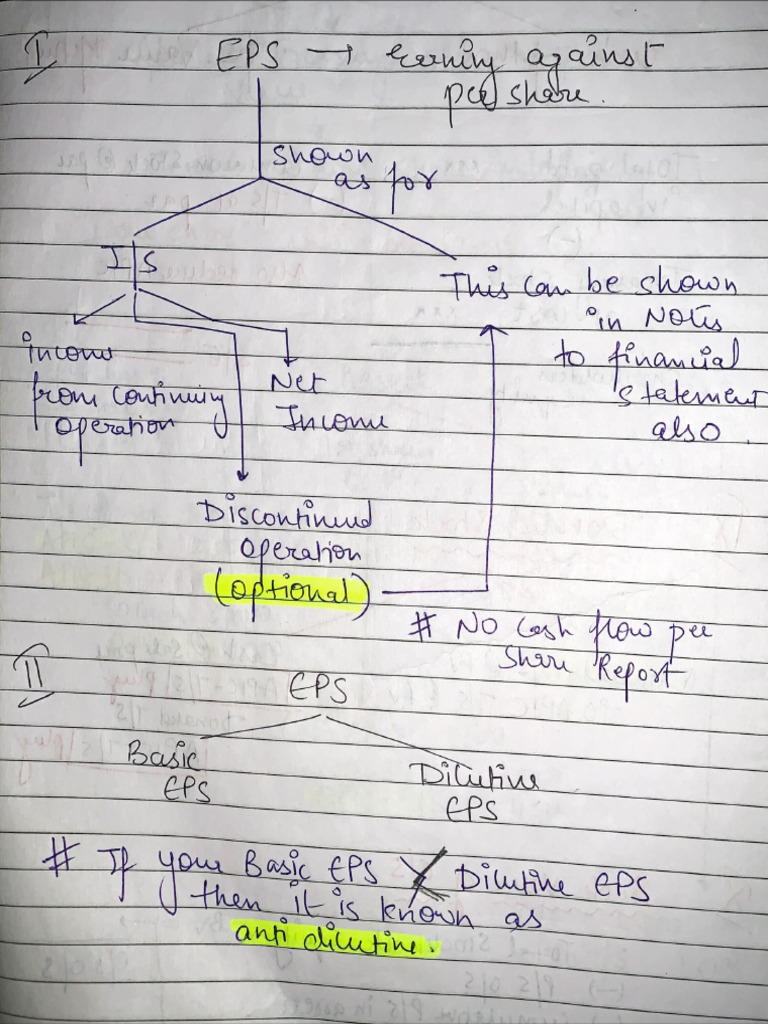 I
EPS → Earning against
per share.
shown
as for
I/S
This can be shown
in Notes
to financial
statement
also.
income
from continuing
operation
Net
Income
Discontinued
operation
(optional)
# No cash flow per
share Report
II
EPS
Basic
EPS
Dilutive
EPS
# If your Basic EPS < Dilutive EPS
then it is known as
anti dilutive.